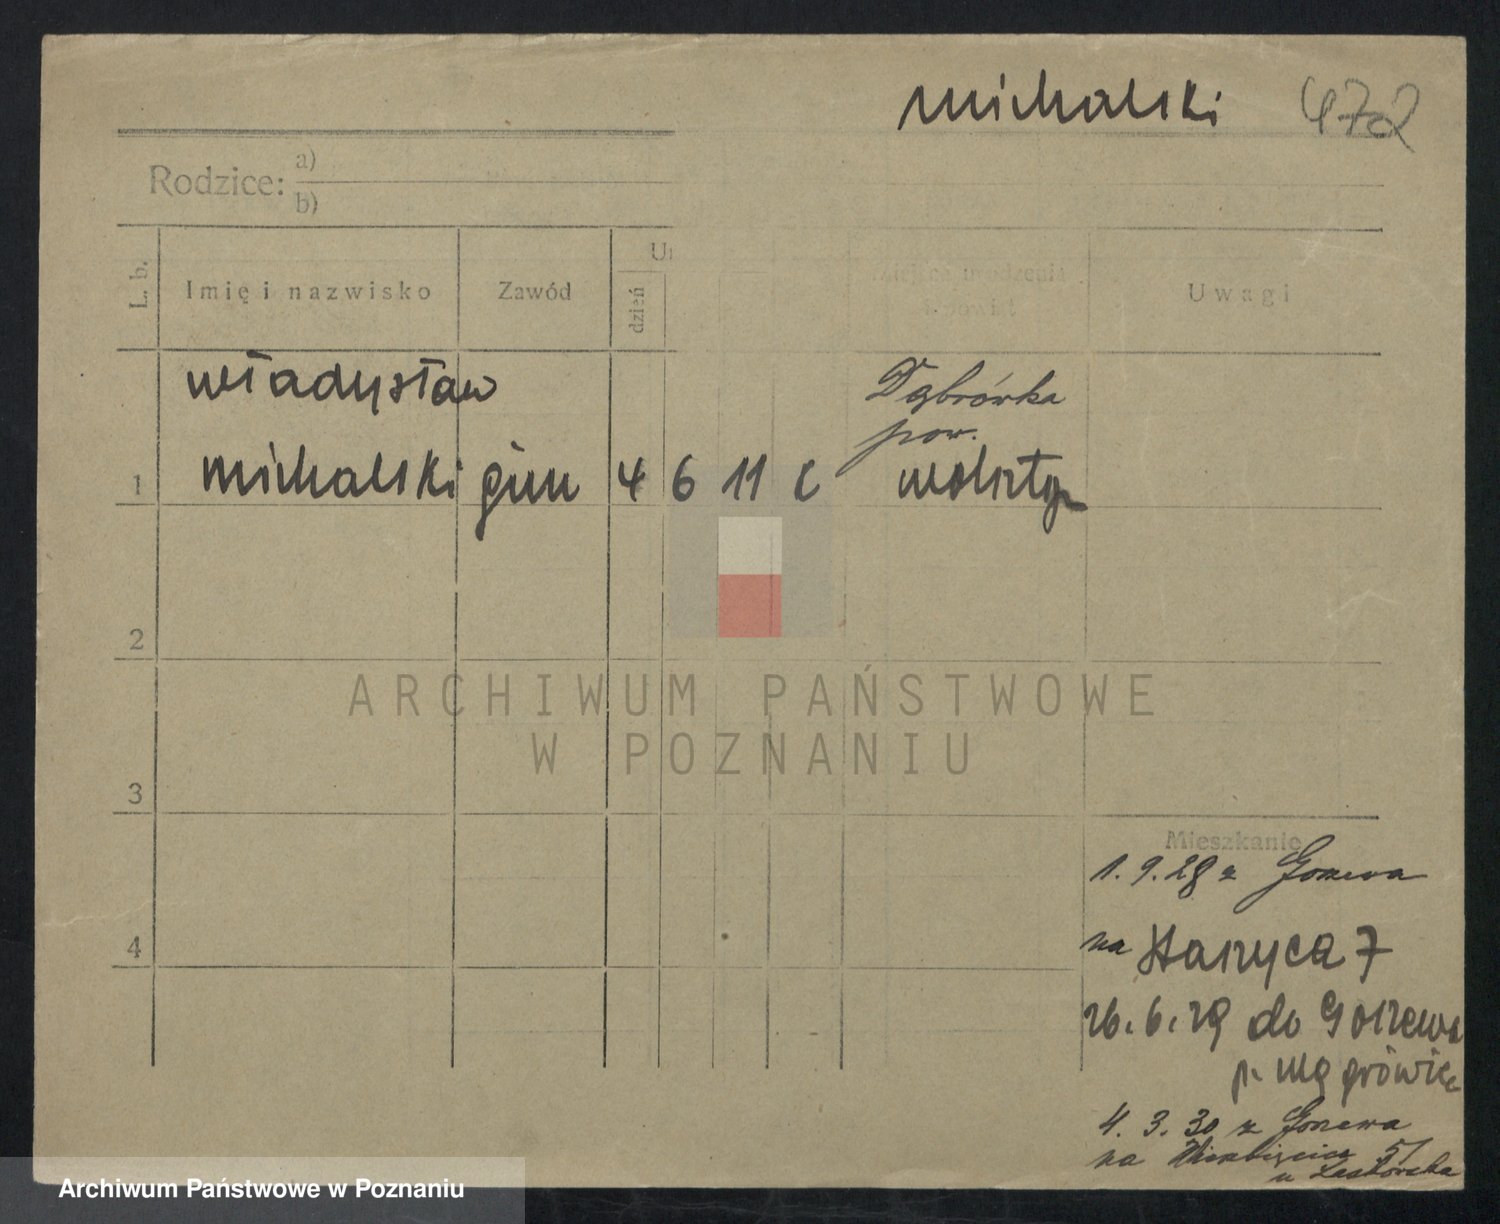 Michalski 472
Rodzice: a)
b)
L. b.
Imię i nazwisko
Zawód
Ur
dzień
miejsce urodzenia
i powiat
Uwagi
Władysław
Dąbrówka
pow.
1 Michalski gim 4 6 11 c Wolsztyn
2
ARCHIWUM PAŃSTWOWE
W POZNANIU
3
Mieszkanie
1. 9. 28 z
4
na Staszyca 7
26. 6. 29 do Goszewa
p. Wągrówiec
4. 3. 30 z
na 51
u
Archiwum Państwowe w Poznaniu